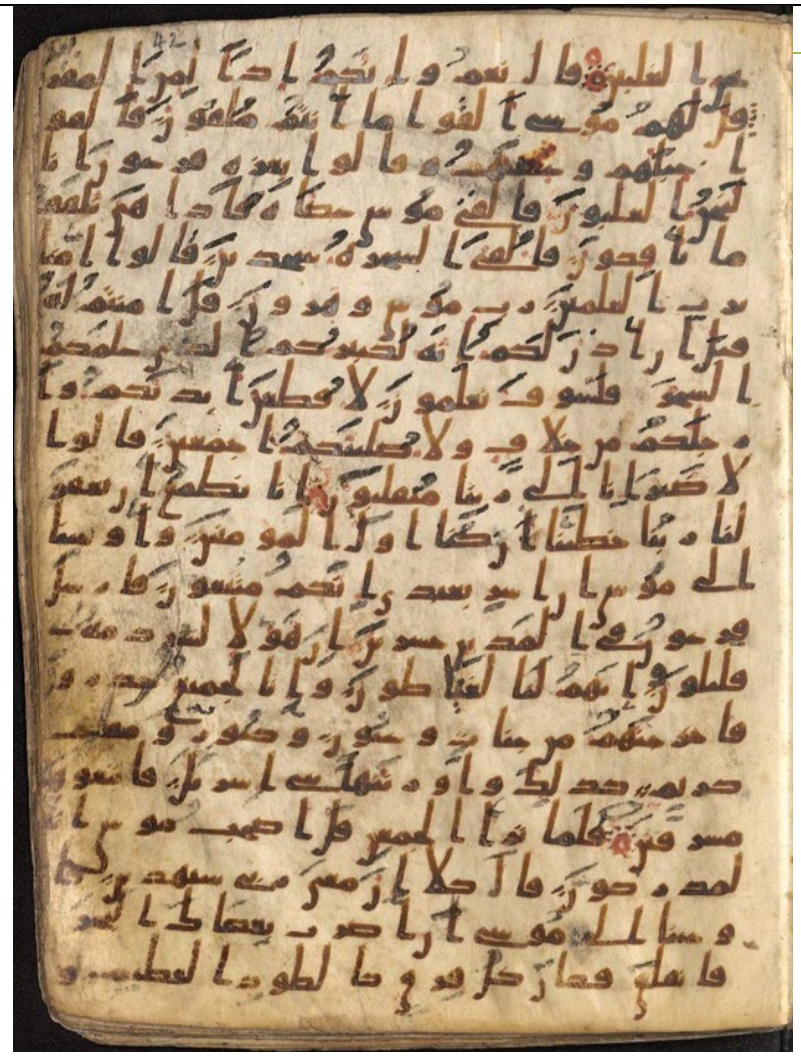 نحن الغلبين قال نعم وانكم اذا لمن المقربين
قل لهم موسى القوا ما انتم ملقون فالقو
ا حبلهم وعصيهم وقالوا بعزة فرعون انا
لنحن الغلبون فالقى موسى عصاه فاذا هي تلقف
ما يافكون فالقي السحرة سجدين قالوا امنا
برب العلمين رب موسى وهرون قل امنتم له
قبل ان اذن لكم انه لكبيركم الذي علمكم
السحر فلسوف تعلمون لاقطعن ايديكم وا
رجلكم من خلاف ولاصلبنكم اجمعين قالوا
لا ضير انا الى ربنا منقلبون انا نطمع ان يغفر
لنا ربنا خطينا ان كنا اول المومنين واوحينا
الى موسى ان اسر بعبادي انكم متبعون فارسل
فرعون في المدين حشرين ان هولا لشرذمة
قليلون وانهم لنا لغايظون وانا لجميع حذرون
فاخرجنهم من جنات وعيون وكنوز ومقام
كريم كذلك واورثنها بني اسريل فاتبعوهم
مشرقين فلما ترا الجمعن قل اصحب موسى انا
لمدركون قال كلا ان معي ربي سيهدين فا
وحينا الى موسى ان اضرب بعصاك البحر
فانفلق فكان كل فرق كالطود العظيم و